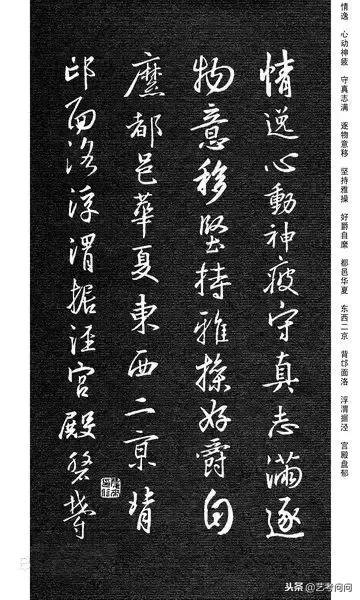 情逸 心动神疲 守真志满 逐物意移 坚持雅操 好爵自縻 都邑华夏 东西二京 背邙面洛 浮渭据泾 宫殿盘郁
情逸心動神疲守真志滿逐
物意移堅持雅操好爵自
縻都邑華夏東西二京背
邙面洛浮渭据涇宮殿盤鬱
头条 @艺考问问